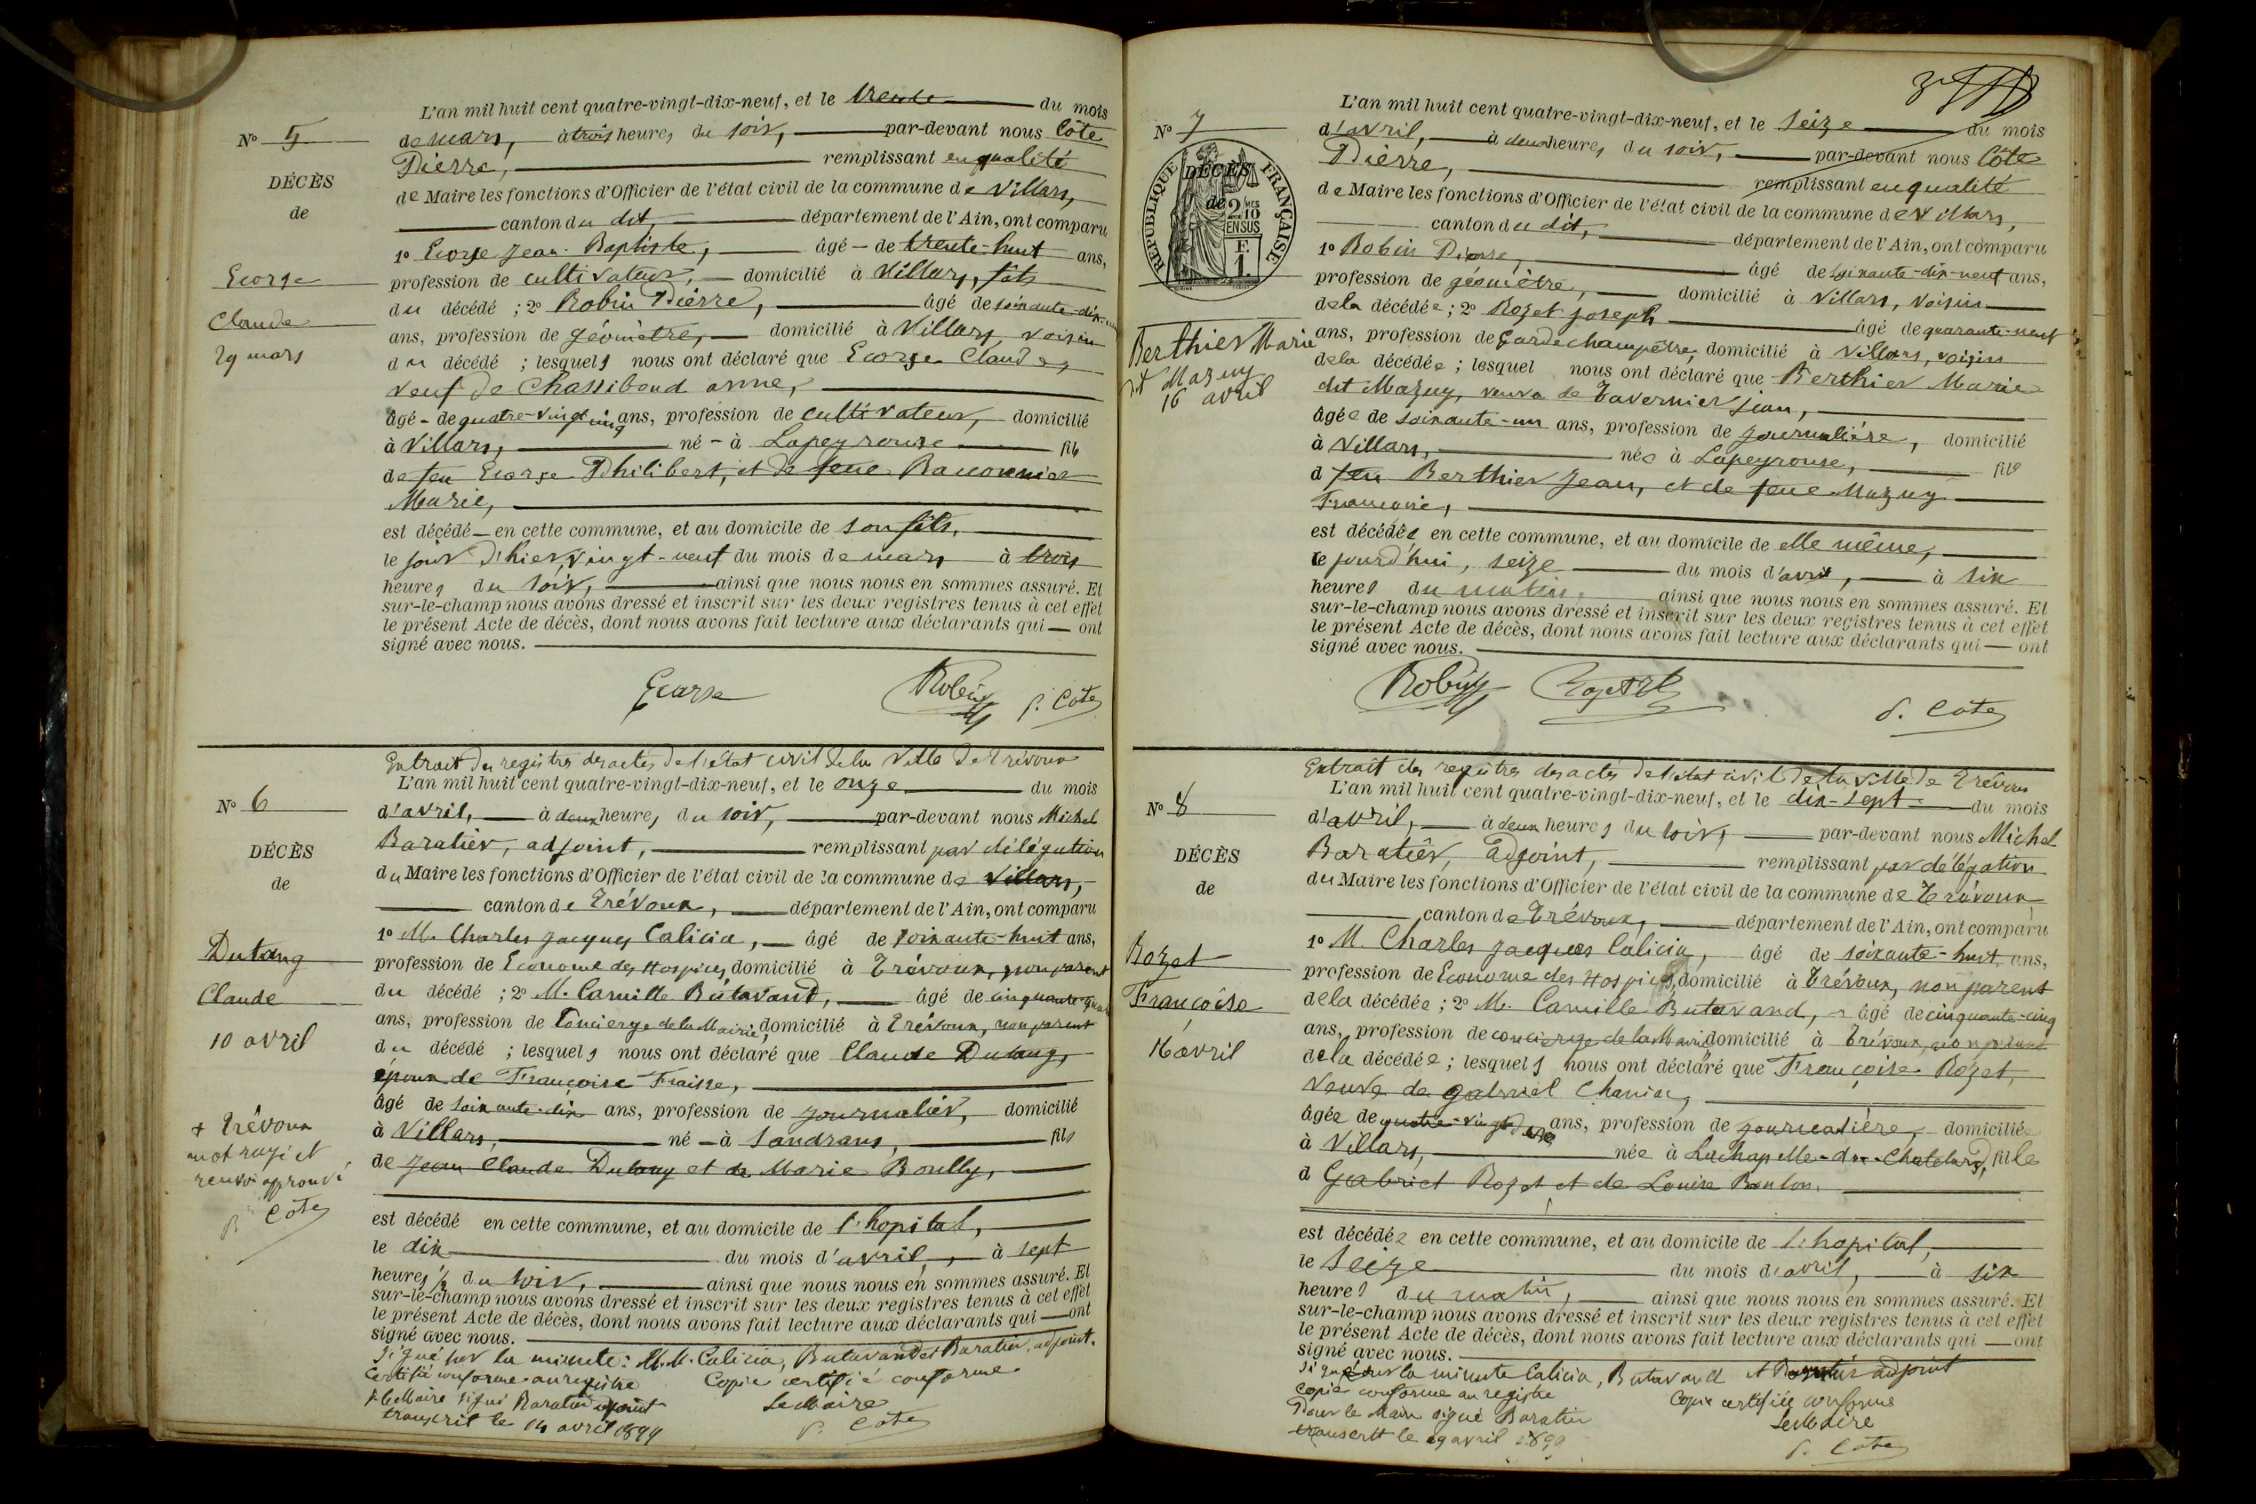 L'an mil huit cent quatre-vingt-dix-neuf, et le trente du mois
No 5
de mars, à trois heures du soir, par-devant nous Côte
Pierre, remplissant en qualité
DÉCÈS
de Maire les fonctions d'Officier de l'état civil de la commune de Villars,
de
canton du dit, département de l'Ain, ont comparu
1o Ecorge Jean-Baptiste, âgé de trente-huit ans,
Ecorge
profession de cultivateur, domicilié à Villars, fils
Claude
du décédé ; 2o Robin Pierre, âgé de soixante-dix-
29 mars
ans, profession de géomètre, domicilié à Villars, voisin
du décédé ; lesquels nous ont déclaré que Ecorge Claude,
veuf de Chassiboud anne,
âgé de quatre-vingt cinq ans, profession de cultivateur, domicilié
à Villars, né à Lapeyrouse fils
de feu Ecorge Philibert, et de feue Baconnier
Marie,
est décédé en cette commune, et au domicile de son fils,
le jour d'hier, vingt-neuf du mois de mars à trois
heures du soir, ainsi que nous nous en sommes assuré. Et
sur-le-champ nous avons dressé et inscrit sur les deux registres tenus à cet effet
le présent Acte de décès, dont nous avons fait lecture aux déclarants qui ont
signé avec nous.
Ecorge Robin P. Côte
Extrait du registre des actes de l'état civil de la Ville de Trévoux
L'an mil huit cent quatre-vingt-dix-neuf, et le onze du mois
No 6
d'avril, à deux heures du soir, par-devant nous Michel
Baratier, adjoint, remplissant par délégation
DÉCÈS
du Maire les fonctions d'Officier de l'état civil de la commune de Villars,
de
canton de Trévoux, département de l'Ain, ont comparu
1o M. Charles Jacques Calicia, âgé de soixante-huit ans,
Dutang
profession de Econome des Hospices, domicilié à Trévoux, non parent
Claude
du décédé ; 2o M. Camille Butavand, âgé de cinquante-
10 avril
ans, profession de Concierge de la Mairie, domicilié à Trévoux, non parent
du décédé ; lesquels nous ont déclaré que Claude Dutang,
époux de Françoise Fraisse,
âgé de soixante-dix ans, profession de journalier, domicilié
+ Trévoux
mot rayé et
renvoi approuvé
P. Côte
à Villars, né à Sandrans, fils
de Jean Claude Dutang et de Marie Bouilly,
est décédé en cette commune, et au domicile de l'hopital,
le dix du mois d'avril, à sept
heures 1/2 du soir, ainsi que nous nous en sommes assuré. Et
sur-le-champ nous avons dressé et inscrit sur les deux registres tenus à cet effet
le présent Acte de décès, dont nous avons fait lecture aux déclarants qui ont
signé avec nous.
Signé sur la minute : M.M. Calicia, Butavand et Baratier, adjoint.
Certifié conforme au registre Copie certifié conforme
P. le Maire signé Baratier adjoint Le Maire
transcrit le 14 avril 1899 P. Côte
L'an mil huit cent quatre-vingt-dix-neuf, et le seize du mois
No 7
d'avril, à deux heures du soir, par-devant nous Côte
Pierre, remplissant en qualité
RÉPUBLIQUE FRANÇAISE
DÉCÈS
de
2/10 EN SUS
F. 1.
de Maire les fonctions d'Officier de l'état civil de la commune de Villars,
canton du dit, département de l'Ain, ont comparu
1o Robin Pierre, âgé de soixante-dix-neuf ans,
profession de géomètre, domicilié à Villars, voisin
de la décédée ; 2o Rozet Joseph âgé de quarante-neuf
Berthier Marie
dit Mazuy
16 avril
ans, profession de Garde champêtre, domicilié à Villars, voisin
de la décédée ; lesquel nous ont déclaré que Berthier Marie
dit Mazuy, veuve de Tavernier Jean,
âgée de soixante-un ans, profession de journalière, domicilié
à Villars, née à Lapeyrouse, fille
d feu Berthier Jean, et de feue Mazuy
Françoise,
est décédée en cette commune, et au domicile de elle même,
le jourd'hui, seize du mois d'avril, à six
heures du matin, ainsi que nous nous en sommes assuré. Et
sur-le-champ nous avons dressé et inscrit sur les deux registres tenus à cet effet
le présent Acte de décès, dont nous avons fait lecture aux déclarants qui ont
signé avec nous.
Robin Rozet P. Côte
Extrait des registres des actes de l'état civil de la ville de Trévoux
L'an mil huit cent quatre-vingt-dix-neuf, et le dix-sept du mois
No 8
d'avril, à deux heures du soir, par-devant nous Michel
Baratier, Adjoint, remplissant par délégation
DÉCÈS
du Maire les fonctions d'Officier de l'état civil de la commune de Trévoux
de
canton de Trévoux, département de l'Ain, ont comparu
1o M. Charles Jacques Calicia, âgé de soixante-huit ans,
Rozet
profession de Econome des Hospices, domicilié à Trévoux, non parent
Françoise
de la décédée ; 2o M. Camille Butavand, âgé de cinquante-cinq
16 avril
ans, profession de concierge de la Mairie domicilié à Trévoux, non parent
de la décédée ; lesquels nous ont déclaré que Françoise Rozet,
veuve de Gabriel Chanian,
âgée de quatre-vingt ans, profession de journalière, domiciliée
à Villars, née à La Chapelle-du-Chatelard, fille
d Gabriel Rozet et de Louise Bonlon.
est décédée en cette commune, et au domicile de l'hopital,
le seize du mois d'avril, à six
heures du matin, ainsi que nous nous en sommes assuré. Et
sur-le-champ nous avons dressé et inscrit sur les deux registres tenus à cet effet
le présent Acte de décès, dont nous avons fait lecture aux déclarants qui ont
signé avec nous.
Signé sur la minute Calicia, Butavand et Baratier adjoint
Copie conforme au registre Copie certifiée conforme
Pour le Maire signé Baratier Le Maire
transcrit le 19 avril 1899 P. Côte